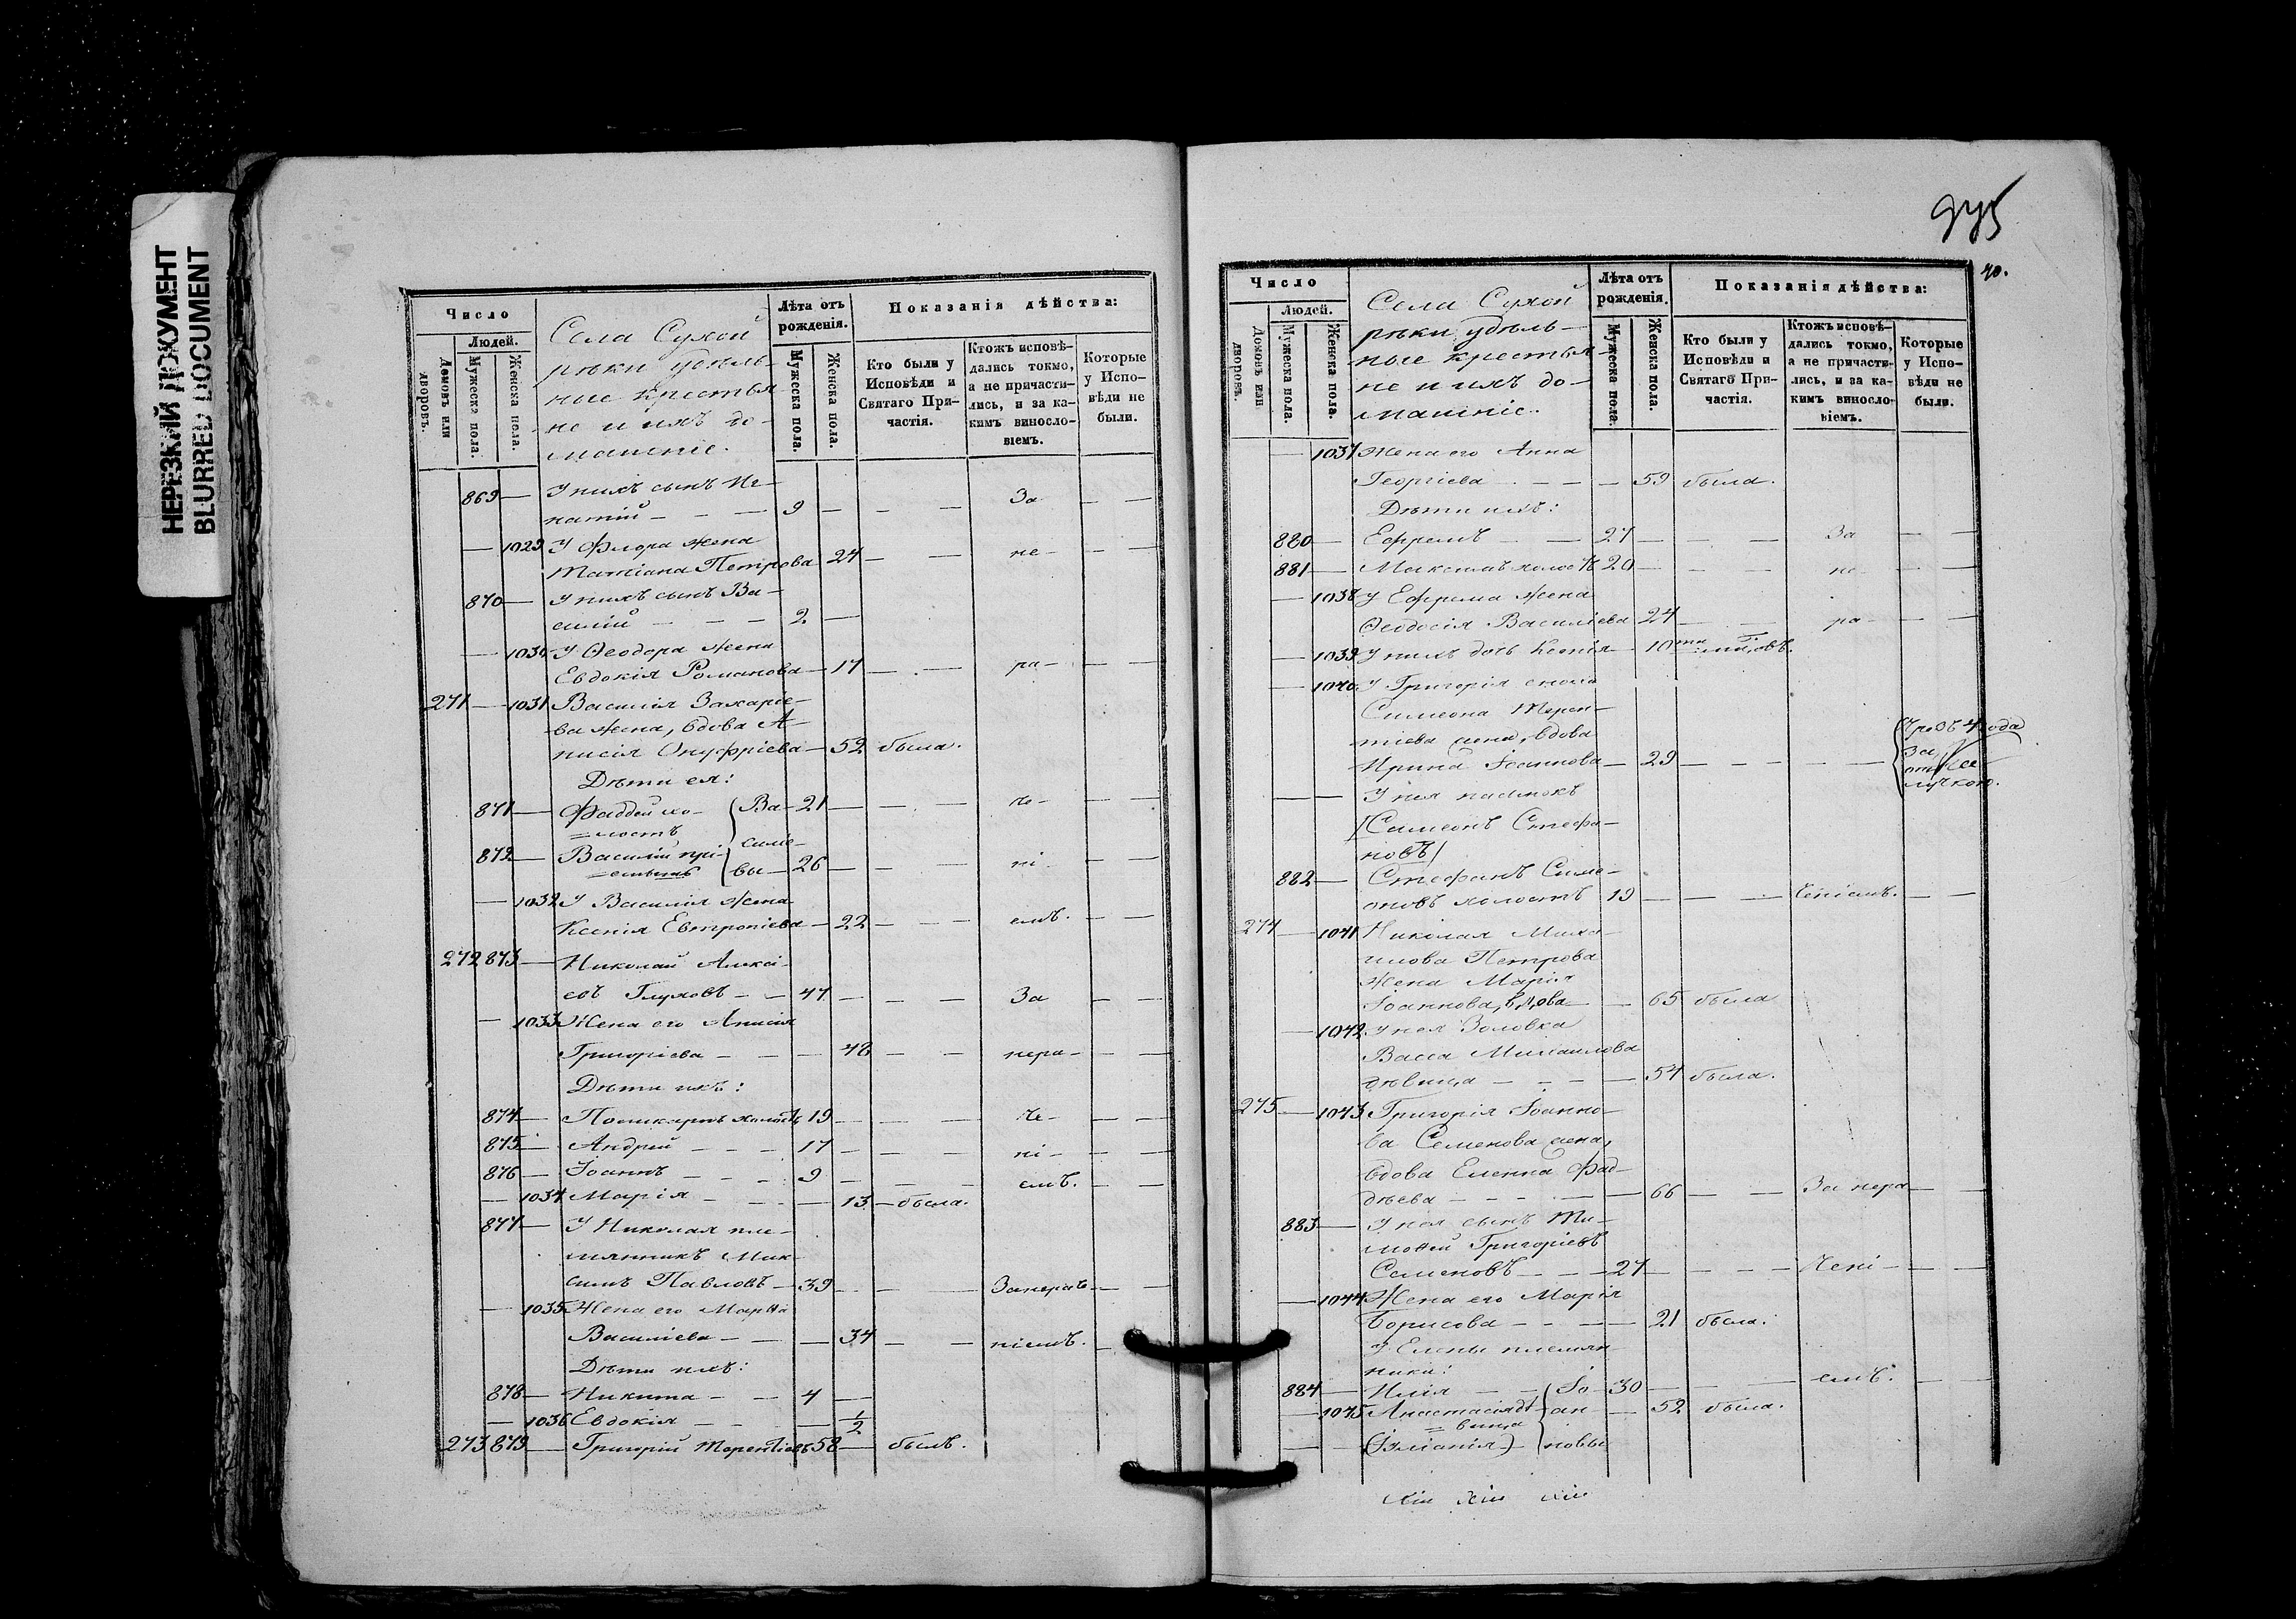 НЕРЕЗКИЙ ДОКУМЕНТ
BLURRED DOCUMENT
Число
Людей.
Домовъ или дворовъ.
Мужеска пола.
Женска пола.
Села Сухой
рѣки удѣль-
ные крестья
не и ихъ до-
машніе.
Лѣта отъ рожденія.
Мужеска пола.
Женска пола.
Показанія дѣйства:
Кто были у Исповѣди и Святаго При-частія.
Ктожъ исповѣ-дались токмо, а не причасти-лись, и за ка-кимъ винословіемъ.
Которые у Испо-вѣди не были.
869 — У нихъ сынъ Иг-
натій — — — 9 — — — За — —
— 1029 У Флора жена
Татіана Петрова 24 — — не — — —
870 — У нихъ сынъ Ва-
силій — — — 2 —
— 1030 У Ѳеодора жена
Евдокія Романова — 17 — — ра — — —
271 — 1031 Василія Захаріе-
ва жена, вдова А-
нисія Онуфріева — 52 была.
Дѣти ея:
871 — Фаддей хо- (Ва — 21 — — — че — — —
=лостъ
872 — Василій прі- силіе-
=емышъ вы — 26 — — — ні — — —
— 1032 У Василія жена
Ксенія Евтропіева — 22 — — — емъ. — —
272 873 — Николай Алексі-
евъ Глуховъ — — 47 — — — За — —
— 1033 Жена его Анисія
Григоріева — — — 48 — — нера — — —
Дѣти ихъ:
874 — Поликарпъ холостъ 19 — — — че — — —
875 — Андрей — — — 17 — — — ні — — —
876 — Іоаннъ — — — 9 — — — емъ. — —
— 1034 Марія — — — 13 — была.
877 — У Николая пле-
мянникъ Мак-
симъ Павловъ — 39 — — — Занераче — —
— 1035 Жена его Марѳа
Василіева — — — 34 — — ніемъ. —
Дѣти ихъ:
878 — Никита — — 4 —
— 1036 Евдокія — — — 1/2
273 879 — Григорій Терентіевъ 58 — былъ.
975
40.
Число
Людей.
Домовъ или дворовъ.
Мужеска пола.
Женска пола.
Села Сухой
рѣки удѣль-
ные крестья-
не и ихъ до-
машніе.
Лѣта отъ рожденія.
Мужеска пола.
Женска пола.
Показанія дѣйства:
Кто были у Исповѣди и Святаго При-частія.
Ктожъ исповѣ-дались токмо, а не причасти-лись, и за ка-кимъ винословіемъ.
Которые у Испо-вѣди не были.
— 1037 Жена его Анна
Георгіева — — — 59 была.
Дѣти ихъ:
880 — Ефремъ — — 27 — — — За — —
881 — Максимъ холостъ 20 — — — не — — —
— 1038 У Ефрема жена
Ѳеодосія Василіева 24 — — ра — — —
— 1039 У нихъ дочь Ксенія — 10
— 1040 У Григорія сноха
Симеона Терен-
тіева жена, вдова
Ирина Іоаннова — 29 — — — — —
Чрезъ 4 года
За
лучкою.
— — У нея пасынокъ
/Симеонъ Стефа-
новъ/
882 — Стефанъ Симе-
оновъ холостъ 19 — — — ченіемъ. — —
274 — 1041 Николая Миха-
илова Петрова
жена Марія
Іоаннова, вдова — — 65 была
— 1042 У нея Золовка
Васса Михаилова
дѣвица — — — — 54 была.
275 — 1043 Григорія Іоанно-
ва Семенова жена,
вдова Елена Фад-
дѣева — — — — — 66 — — За нера — —
883 — У нея сынъ Ти-
моѳей Григоріевъ
Семеновъ — — — 27 — — — чені — — —
— 1044 Жена его Марія
Борисова — — — — 21 была.
У Елены племян
ники:
884 — Илія — — (Іо — 30 — — — емъ. — —
— 1045 Анастасія дѣ- ан- — 52 была.
=вица
— — (Іуліанія) новы